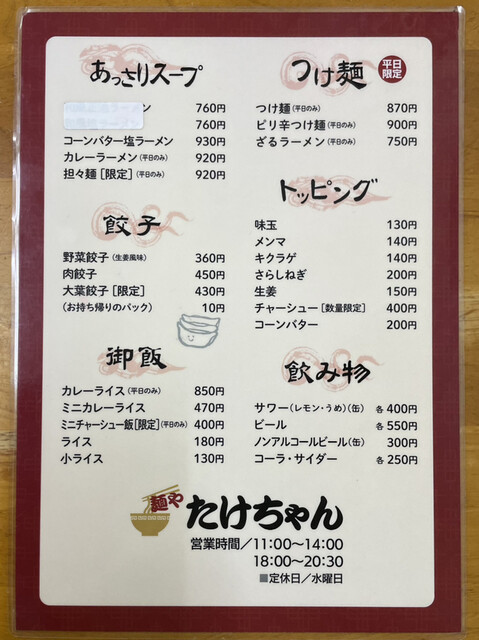 あっさりスープ
ン 760円
760円
コーンバター塩ラーメン 930円
カレーラーメン(平日のみ) 920円
担々麺[限定](平日のみ) 920円
餃子
野菜餃子(生姜風味) 360円
肉餃子 450円
大葉餃子[限定] 430円
(お持ち帰りのパック) 10円
御飯
カレーライス(平日のみ) 850円
ミニカレーライス 470円
ミニチャーシュー飯[限定](平日のみ) 400円
ライス 180円
小ライス 130円
つけ麺 平日限定
つけ麺(平日のみ) 870円
ピリ辛つけ麺(平日のみ) 900円
ざるラーメン(平日のみ) 750円
トッピング
味玉 130円
メンマ 140円
キクラゲ 140円
さらしねぎ 200円
生姜 150円
チャーシュー[数量限定] 400円
コーンバター 200円
飲み物
サワー(レモン・うめ)(缶) 各400円
ビール 各550円
ノンアルコールビール(缶) 300円
コーラ・サイダー 各250円
麺や たけちゃん
営業時間/11:00〜14:00
18:00〜20:30
■定休日/水曜日